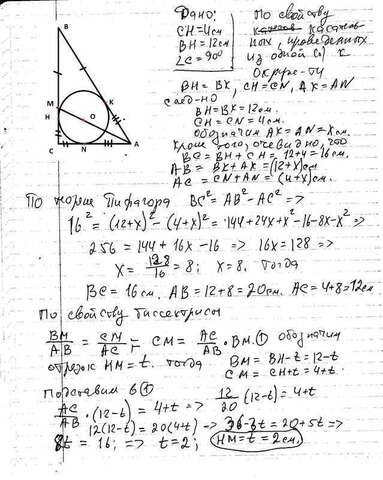 B
M
H
C
N
A
K
O
Дано:
CH=4см
BH=12см
∠C=90°
По свойству
касатель-
ных, проведенных
из одной
окруж-ти
BH = BK, CH=CN, AK=AN
след-но
BH=BK=12см.
CH=CN=4см.
обозначим AK=AN=xсм.
кроме того, очевидно, что
BC=BH+CH=12+4=16см.
AB= BK+AK=(12+x)см
AC= CN+AN=(4+x)см.
По теореме Пифагора BC²=AB²-AC² =>
16²=(12+x)²-(4+x)²=144+24x+x²-16-8x-x² =>
256=144+16x-16 => 16x=128 =>
x=128/16=8; x=8. тогда
BC=16см. AB=12+8=20см. AC=4+8=12см
По свойству биссектрисы
BM/AB = CM/AC; CM = AC/AB · BM. ① обозначим
отрезок HM=t. тогда BM=BH-t=12-t
CM=CH+t=4+t.
Подставим в ①
AC/AB · (12-t)=4+t => 12/20 (12-t)=4+t
12(12-t)=20(4+t) => 36-3t=20+5t =>
8t=16; => t=2; HM=t=2см.